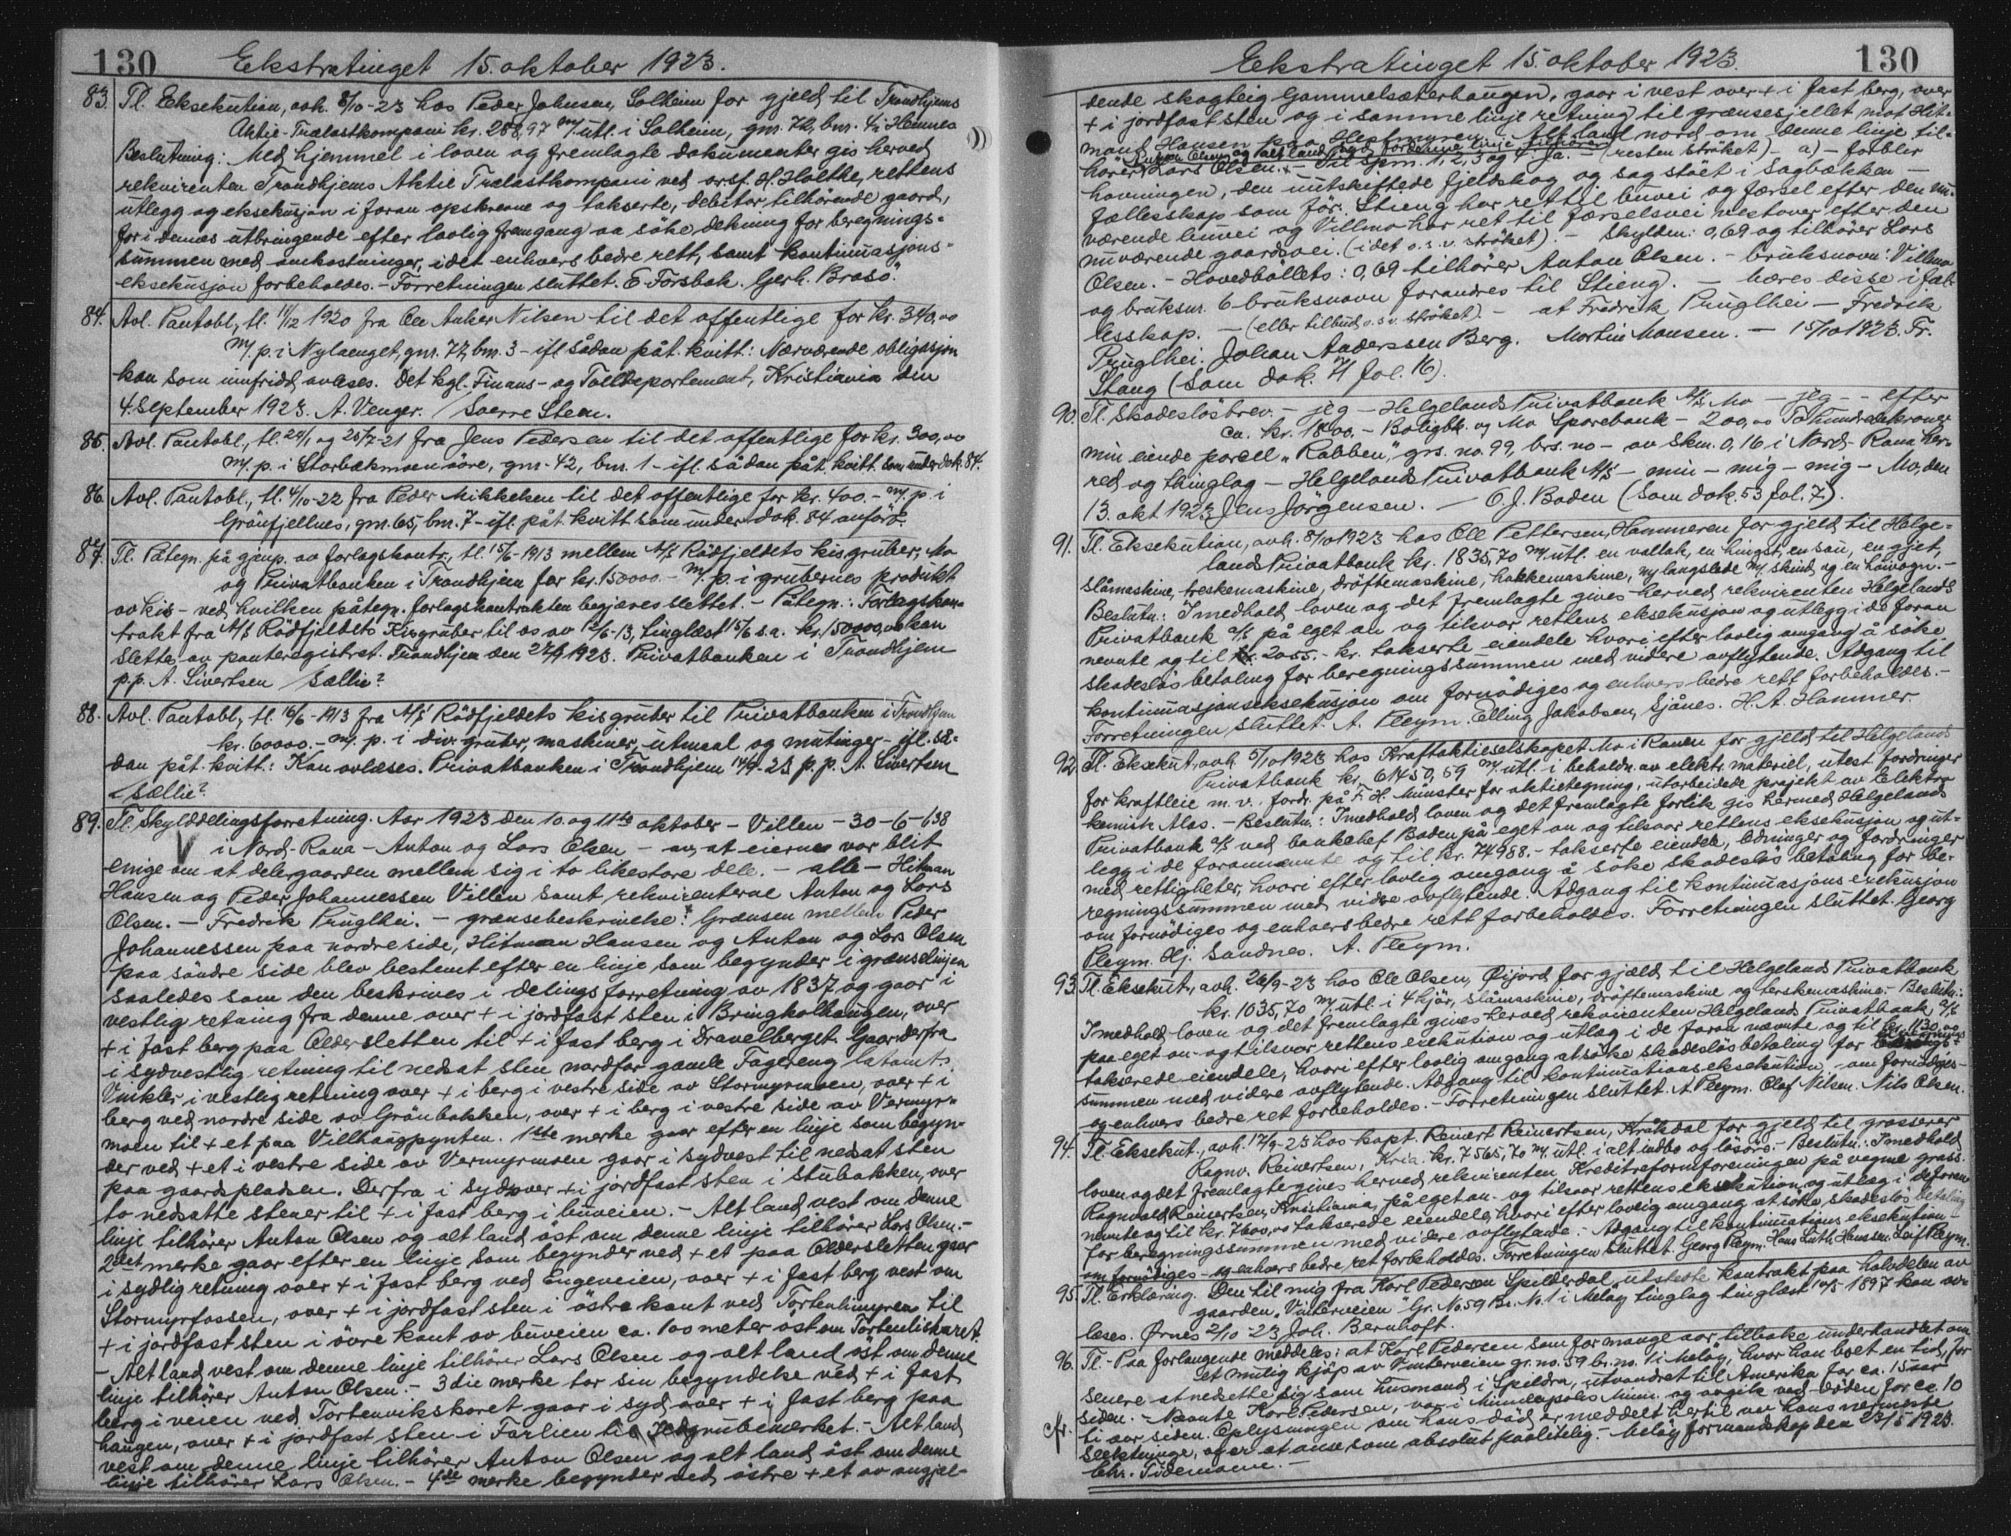 130 Ekstratinget 15. oktober 1923.
83. Tl. Eksekution, avh. 8/10-23 hos Peder Johnsen, Solheim for gjeld til Trondhjems
Aktie-Trælastkompani kr. 288,97 m/ utl. i Solheim, gnr. 72, bnr. 4 i Hemnes
Beslutning: Med hjemmel i loven og fremlagte dokumenter gis herved
rekvirenten Trondhjems Aktie Trælastkompani ved orsf. H. Holthe, rettens
utlegg og eksekusjon i foran opskrevne og takserte, debitor tilhørende gaard,
for i dennes utbringende efter lovlig fremgang aa söke dekning for beregnings-
summen med omkostninger, idet enhvers bedre rett, samt kontinuasjons-
eksekusjon forbeholdes. - Forretningen sluttet. E. Forsbak. Gerh. Brasö.
84. Avl. Pantobl., tl. 11/12 1920 fra Ole Anker Nilsen til det offentlige for kr. 340,00
m/ p. i Nylaenget, gnr. 77, bnr. 3 - ifl sådan påt. kvitt: Nærværende obligasjon
kan som innfridd avleses. Det kgl. Finans- og Tolldepartement, Kristiania den
4. september 1923. A. Venger. / Sverre Steen.
85. Avl. Pantobl., tl. 24/1 og 25/7-21 fra Jens Pedersen til det offentlige for kr. 300,00
m/ p. i Storbækmoen søre, gnr. 42, bnr. 1 - ifl. sådan påt. kvitt. som under dok. 84.
86. Avl. Pantobl., tl. 4/10-22 fra Peder Mikkelsen til det offentlige for kr. 400.- m/ p. i
Grönfjellnes, gnr. 65, bnr. 7 - ifl. påt. kvitt. som under dok. 84 anført.
87. Tl. Påtegn. på gjenp. av forlagskontr., tl. 15/6-1913 mellem A/S Rödfjeldets kisgruber, Mo
og Privatbanken i Trondhjem for kr. 150000.- m/ p. i grubernes produkt
av kis - ved hvilken påtegn. forlagskontrakten begjæres slettet. - Påtegn.: Forlagskon-
trakt fra A/S Rödfjeldets Kisgruber til os av 12/6-13, tinglæst 15/6 s.a. kr. 150000,00 kan
slettes av panteregistret. Trondhjem den 27/9 1923. Privatbanken i Trondhjem
p.p. A. Sivertsen / Sællie?
88. Avl. Pantobl., tl. 16/6-1913 fra A/S Rödfjeldets kisgruber til Privatbanken i Trondhjem
kr. 60000.- m/ p. i div. gruber, maskiner, utmaal og mutinger - ifl. så-
dan påt. kvitt.: Kan avlæses. Privatbanken i Trondhjem 14/9-23 p.p. A. Sivertsen
/ Sællie?
89. Tl. Skylddelingsforretning. Aar 1923 den 10. og 11te oktober - Villen - 30 - 6 - 638
V i Nord-Rana - Anton og Lars Olsen - av, at eierne var blit
enige om at dele gaarden mellem sig i to likestore dele. - alle - Hitman
Hansen og Peder Johannessen Villen samt rekvirenterne Anton og Lars
Olsen. - Fredrik Pruglhei. - grænsebeskrivelse: Grænsen mellem Peder
Johannessen paa nordre side, Hitman Hansen og Anton og Lars Olsen
paa söndre side blev bestemt efter en linje som begynder i grænselinjen
saaledes som den beskrives i delingsforretning av 1837 og gaar i
vestlig retning fra denne over + i jordfast sten i Bringkolhaugen, over
+ i fast berg paa Oldersletten til + i fast berg i Dravelberget. Gaar derfra
i sydvestlig retning til nedsat sten nordfor gamle Fagereng latomt.
Vinkler i vestlig retning over + i berg i vestre side av Stormyrmoen, over + i
berg ved nordre side av Grönbakken, over + i berg i vestre side av Vermyr-
moen til + et paa Villhaugpynten. 1ste merke gaar efter en linje som begyn-
der ved + et i vestre side av Vermyrmoen gaar i sydvest til nedsat sten
paa gaardspladsen. Derfra i syd over + i jordfast sten i Stubakken, over
to nedsatte stener til + i fast berg i buveien. - Alt land vest om denne
linje tilhører Anton Olsen og alt land öst om denne linje tilhører Lars Olsen. -
2det merke gaar efter en linje som begynder ved + et paa Oldersletten gaar
i sydlig retning over + i fast berg ved Engeveien, over + i fast berg vest om
Stormyrfossen, over + i jordfast sten i östre kant ved Tortenlimyren til
+ i jordfast sten i övre kant av buveien ca. 100 meter öst om Tortenliskaret.
- Alt land vest om denne linje tilhører Lars Olsen og alt land öst om denne
linje tilhører Anton Olsen. - 3die merke tar sin begyndelse ved + i fast
berg i veien ved Tortenvikskaret gaar i syd over + i fast berg paa
haugen, over + i jordfast sten i Farlien til Jedgrubemerket. - Alt land
vest om denne linje tilhører Anton Olsen og alt land öst om denne
linje tilhører Lars Olsen. - 4de merke begynder ved östre + et av angjel-
Ekstratinget 15. oktober 1923. 130
dende skogteig Gammelsæterhaugen, gaar i vest over + i fast berg, over
+ i jordfast sten og i samme linje retning til grænsesjellet mot Hit-
mand Hansen paa Hestmyren. Alt land nord om denne linje til-
hører Anton Olsen og alt land syd for denne linje tilhører
Lars Olsen. + - Til spm. 1, 2, 3 og 4 Ja. - (resten strøket) - a) - forblir
havningen, den uutskiftede fjeldskog og sag støet i Sagbækken -
fællesskap som för. Stieng har ret til buvei og færsel efter den nu-
værende buvei og Villmo har ret til færselsvei vestover efter den
nuværende gaardsvei. (idet o.s.v. strøket). - Skylden: 0,69 og tilhører Lars
Olsen. - Hovedbøllets: 0,69 tilhører Anton Olsen. - bruksnavn: Villmo
og bruksnr. 6 bruksnavn forandres til Stieng. - bæres disse i fæl-
lesskap. - (eller tilbud o.s.v. strøket). - at Fredrik Pruglhei - Fredrik
Pruglhei. Johan Anderssen Berg. Martin Monsen. - 15/10 1923. Fr.
Stang (Som dok. 71 fol. 16).
90. Tl. skadeslösbrev. - jeg - Helgelands Privatbank A/S Mo - jeg - - efter
ca. kr. 1800. - Boligbk. og Mo Sparebank - 200,00 Tohundredekroner
min eiende parcel „Rabben", grs. no. 99, brs. no - av skm. 0,16 i Nord-Rana her-
red og thinglag - Helgelands Privatbank A/S - min - mig - mig - Mo, den
13. okt 1923 Jens Jörgensen. - O. J. Boden (Som dok. 53 fol. 7).
91. Tl. Eksekution, avh. 8/10 1923 hos Ole Pettersen, Hammeren for gjeld til Helge-
lands Privatbank kr. 1835,70 m/ utl. en vallak, en hingst, en sau, en gjet,
slåmaskine, treskemaskine, dröftemaskine, hakkemaskine, m/ langslede m/ skind og en høivogn. -
Beslutn.: I medhold loven og det fremlagte gives herved rekvirenten Helgelands
Privatbank A/S på eget an og tilsvar rettens eksekusjon og utlegg i de foran
nevnte og til kr. 2055.- kr. takserte eiendele hvori efter lovlig omgang å söke
skadeslös betaling for beregningssummen med videre avflytende. Adgang til
kontinuasjonseksekusjon om fornödiges og enhvers bedre rett forbeholdes. -
Forretningen sluttet. A. Pleym. Elling Jakobsen, Sjånes. H. A. Hammer.
92. Tl. Eksekut., avh. 5/10 1923 hos Kraftaktieselskapet Mo i Ranen for gjeld til Helgelands
Privatbank kr. 61450,59 m/ utl. i beholdn. av elektr. materiel, utest. fordringer
for kraftleie m. v., fordr. på F. H. Münster for aktietegning, utarbeidede prosjekt av Elektro-
kemisk Alas. - Beslutn.: I medhold loven og det fremlagte forlik gis hermed Helgelands
Privatbank A/S ved bankchef Boden på eget an og tilsvar rettens eksekusjon og ut-
legg i de forannevnte og til kr. 74988.- takserte eiendele, ledninger og fordringer
med rettigheter, hvori efter lovlig omgang å söke skadeslös betaling for be-
regningssummen med vidre avflytende. Adgang til kontinuasjonseksekusjon
om fornödiges og enhvers bedre rett forbeholdes. Forretningen sluttet. Georg
Pleym. Hj. Sandnes. A. Pleym.
93. Tl. Eksekut., avh. 26/9-23 hos Ole Olsen, Öijord for gjæld til Helgelands Privatbank
kr. 1035,70 m/ utl. i 4 kjör, slåmaskine, dröftemaskine og terskemaskine. - Beslutn.:
I medhold loven og det fremlagte gives herved rekvirenten Helgelands Privatbank A/S
paa eget an- og tilsvar rettens exekution og utlæg i de foran nævnte og til kr. 1130,00
takserede eiendele, hvori efter lovlig omgang at söke skadeslös betaling for beregnings-
summen med videre avflytende. Adgang til kontinuationseksekution om fornödiges -
og enhvers bedre ret forbeholdes. - Forretningen sluttet. A. Pleym. Olaf Nilsen. Nils Olsen.
94. Tl. Eksekut., avh. 17/9-23 hos kapt. Reinert Reinertsen, Kråkdal for gjeld til grosserer
Ragnv. Reinertsen, Kria. kr. 7565,70 m/ utl. i alt indbo og lösöre. - Beslutn.: I medhold
loven og det fremlagte gives herved rekvirenten Kreditreformforeningen på vegne gross.
Ragnvald Reinertsen, Kristiania, på eget an- og tilsvar rettens eksekution og utlæg i de foran
nævnte og til kr. 7600,00 takserede eiendele, hvori efter lovlig omgang at söke skadeslös betaling
for beregningssummen med videre avflytende. - Adgang til kontinuations eksekution -
om fornödiges - og enhvers bedre ret forbeholdes. Forretningen sluttet. Georg Pleym. Hans Luth. Hanssen. Leif Pleym.
95. Tl. Erklæring. Den til mig fra Karl Pedersen Spilderdal utstedte kontrakt paa halvdelen av
gaarden „Vinterveien" Gr. No. 59 Br. No. 1 i Meløy tinglag tinglæst 14/5 1897 kan av-
læses. Ørnes 2/10-23 Joh. Bernhoft.
96. Tl. - Paa forlangende meddeles: at Karl Pedersen som for mange aar tilbake underhandlet om
et mulig kjøp av Vinterveien gr. no. 59 br. no. 1 i Meløy, hvor han boet en tid, for
senere at nedsette sig som husmand i Spildra, utvandret til Amerika for ca. 15 aar
siden. - Nævnte Karl Pedersen, var i Minneapolis Minn. og avgik ved döden for ca. 10
cfr. ti aar siden. Oplysningen om hans död er meddelt hertil av hans nærmeste
slektninge, og er at anse som absolut paalitelig. - Meløy formandskap den 23/5 1923.
Chr. Tidemann. -